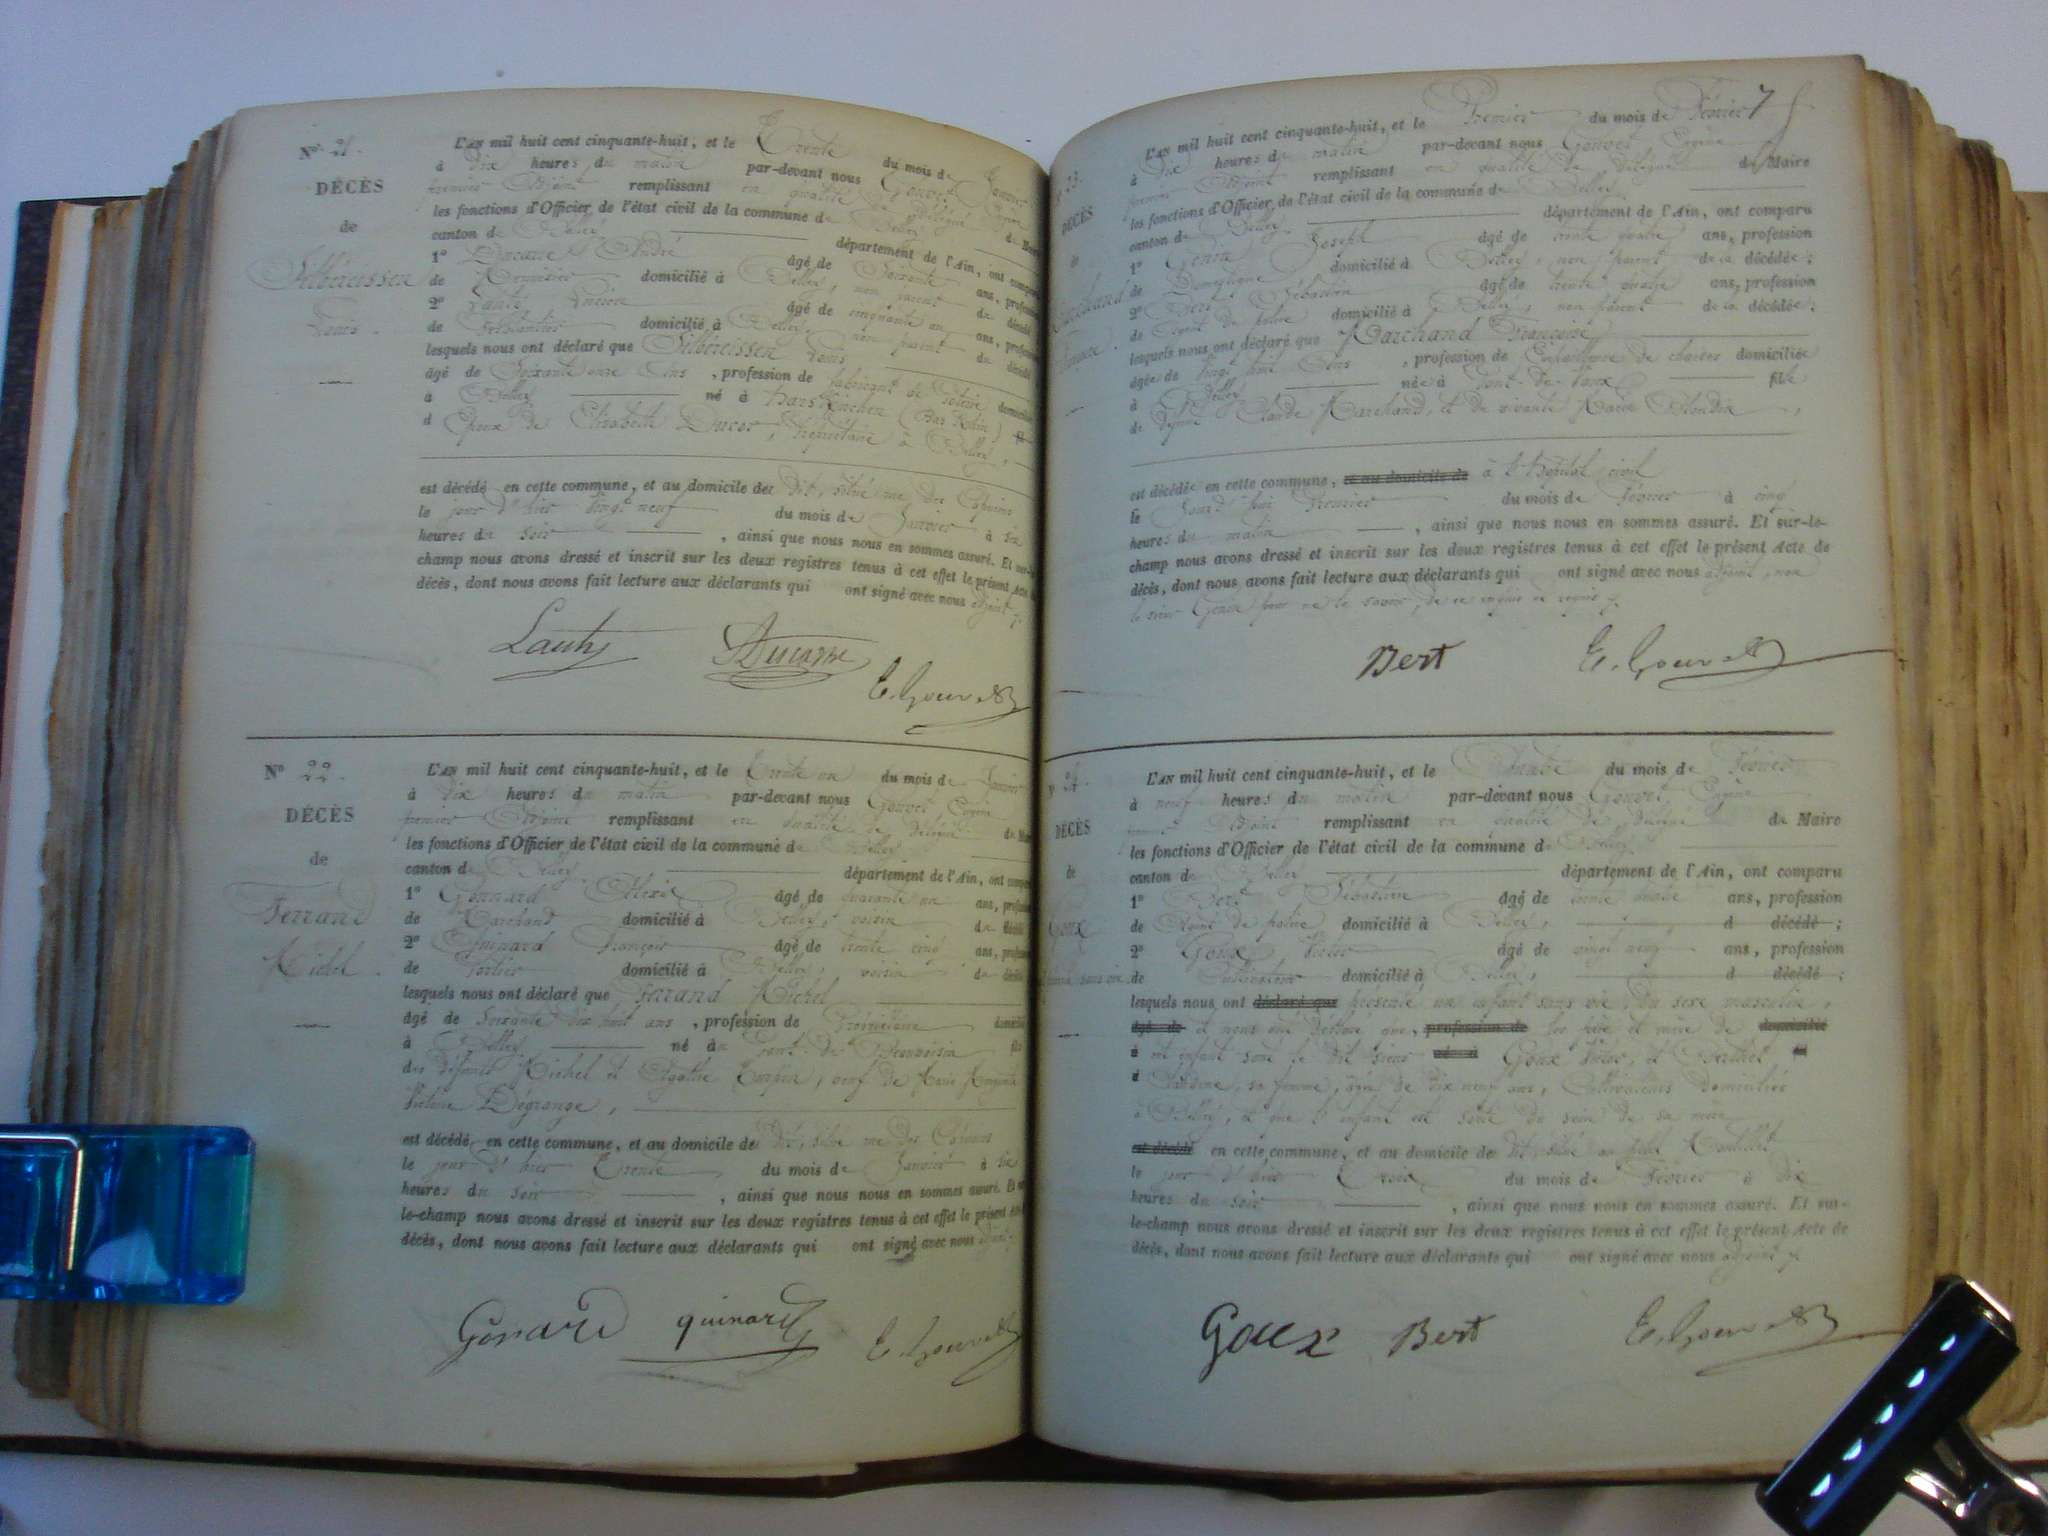 N° 21.
DÉCÈS
de
Silbereissen
Louis.
L'AN mil huit cent cinquante-huit, et le Trente du mois de Janvier
à dix heures du matin par-devant nous Gouvet Eugène
premier Adjoint remplissant en qualité de délégué de
les fonctions d'Officier de l'état civil de la commune de Belley
canton de Belley département de l'Ain, ont
1° André âgé de Soixante ans,
de domicilié à Belley, non parent du décédé
2° Lauty âgé de cinquante un ans,
de Ferblantier domicilié à Belley, non parent du décédé
lesquels nous ont déclaré que Silbereissen Louis
âgé de Soixante onze Ans, profession de fabricant de Poterie
à Belley né à (Bas Rhin)
Époux de Elisabeth Ducer, propriétaire à Belley,
est décédé en cette commune, et au domicile de dit, situé rue des Capucins
le jour d'hier vingt neuf du mois de Janvier à six
heures du soir, ainsi que nous nous en sommes assuré. Et sur-le-
champ nous avons dressé et inscrit sur les deux registres tenus à cet effet le présent Acte
décès, dont nous avons fait lecture aux déclarants qui ont signé avec nous adjoint
Lauty
E. Gouvet
N° 22.
DÉCÈS
de
Ferrand
Michel.
L'AN mil huit cent cinquante-huit, et le Trente un du mois de Janvier
à dix heures du matin par-devant nous Gouvet Eugène
premier Adjoint remplissant en qualité de délégué de
les fonctions d'Officier de l'état civil de la commune de Belley
canton de Belley département de l'Ain, ont
1° Gonnard Alexis âgé de quarante un ans,
de Marchand domicilié à Belley, voisin du décédé
2° Quinard François âgé de trente cinq ans,
de domicilié à Belley, voisin du décédé
lesquels nous ont déclaré que Ferrand Michel
âgé de Soixante dix huit ans, profession de Propriétaire
à Belley né au Pont-de-Beauvoisin fils
des défunts Michel et Agathe, veuf de Marie
Victoire Dégrange,
est décédé en cette commune, et au domicile de dit, situé rue des Capucins
le jour d'hier Trente du mois de Janvier à six
heures du soir, ainsi que nous nous en sommes assuré. Et
le-champ nous avons dressé et inscrit sur les deux registres tenus à cet effet le présent
décès, dont nous avons fait lecture aux déclarants qui ont signé avec nous adjoint
Gonard quinard E. Gouvet
7
23.
DÉCÈS
de
Marchand
Françoise.
L'AN mil huit cent cinquante-huit, et le Premier du mois de Février
à dix heures du matin par-devant nous Gouvet Eugène
premier Adjoint remplissant en qualité de délégué de Maire
les fonctions d'Officier de l'état civil de la commune de Belley
canton de Belley département de l'Ain, ont comparu
1° Genin Joseph âgé de trente quatre ans, profession
de Domestique domicilié à Belley, non parent de la décédée;
2° Bert Sébastien âgé de trente quatre ans, profession
de Agent de police domicilié à Belley, non parent de la décédée;
lesquels nous ont déclaré que Marchand Françoise
âgée de vingt huit Ans, profession de Empailleuse de chaises domiciliée
à Belley née à Pont-de-Vaux fille
de défunt Claude Marchand, et de vivante Marie Blondin,
est décédée en cette commune, et au domicile de à l'hôpital civil
le Jourd'hui Premier du mois de Février à cinq
heures du matin, ainsi que nous nous en sommes assuré. Et sur-le-
champ nous avons dressé et inscrit sur les deux registres tenus à cet effet le présent Acte de
décès, dont nous avons fait lecture aux déclarants qui ont signé avec nous adjoint, non
le sieur Genin pour ne le savoir, de ce enquis et requis
Bert E. Gouvet
24.
DÉCÈS
de
Goux
sans vie
L'AN mil huit cent cinquante-huit, et le Quatre du mois de Février
à neuf heures du matin par-devant nous Gouvet Eugène
premier Adjoint remplissant en qualité de délégué de Maire
les fonctions d'Officier de l'état civil de la commune de Belley
canton de Belley département de l'Ain, ont comparu
1° Bert Sébastien âgé de trente quatre ans, profession
de Agent de police domicilié à Belley, d décédé;
2° Goux âgé de vingt cinq ans, profession
de Cultivateur domicilié à Belley, d décédé;
lesquels nous ont déclaré que présenté un enfant sans vie, du sexe masculin,
âgé de et nous ont déclaré que, profession de les père et mère de domicilié
à cet enfant sont le dit sieur né à Goux et
d Claudine, sa femme, âgée de dix neuf ans, Cultivateurs domiciliés
à Belley, et que l'enfant est sorti du sein de sa mère
est décédé en cette commune, et au domicile de dit, situé au
le jour d'hier Trois du mois de Février à dix
heures du soir, ainsi que nous nous en sommes assuré. Et sur-
le-champ nous avons dressé et inscrit sur les deux registres tenus à cet effet le présent Acte de
décès, dont nous avons fait lecture aux déclarants qui ont signé avec nous adjoint
Goux Bert E. Gouvet